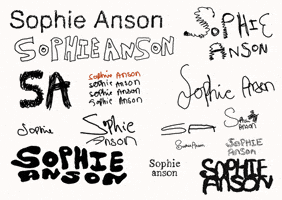 Sophie Anson
SOPHIE ANSON
SOPHIE
ANSON
SA
Sophie Anson
Sophie Anson
Sophie Anson
Sophie Anson
Sophie Anson
Sophie
Sophie
Anson
SA
Sophie
Anson
Sophie Anson
SOPHIE
ANSON
SOPHIE
ANSON
Sophie
anson
SOPHIE
ANSON